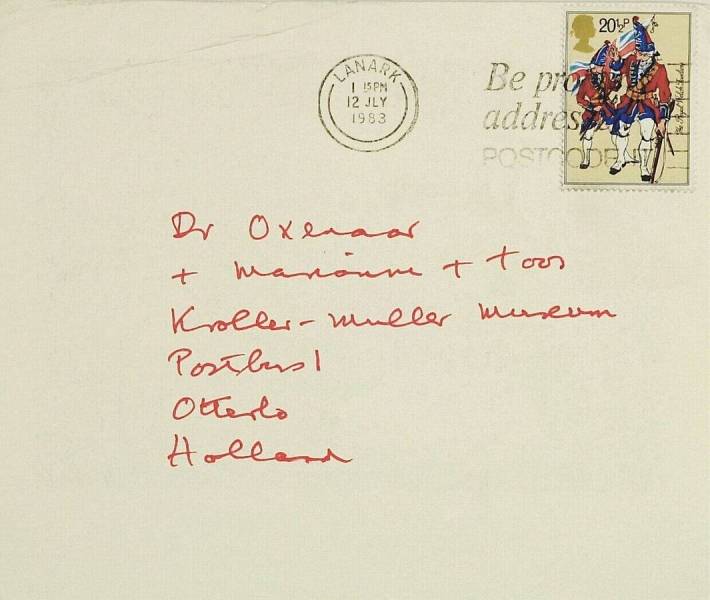 LANARK
1 15PM
12 JLY
1983
Be pro
address
POSTCODE
20½P
Dr Oxenaar
+ Marianne + Toos
Kroller-Muller Museum
Postbus 1
Otterlo
Holland